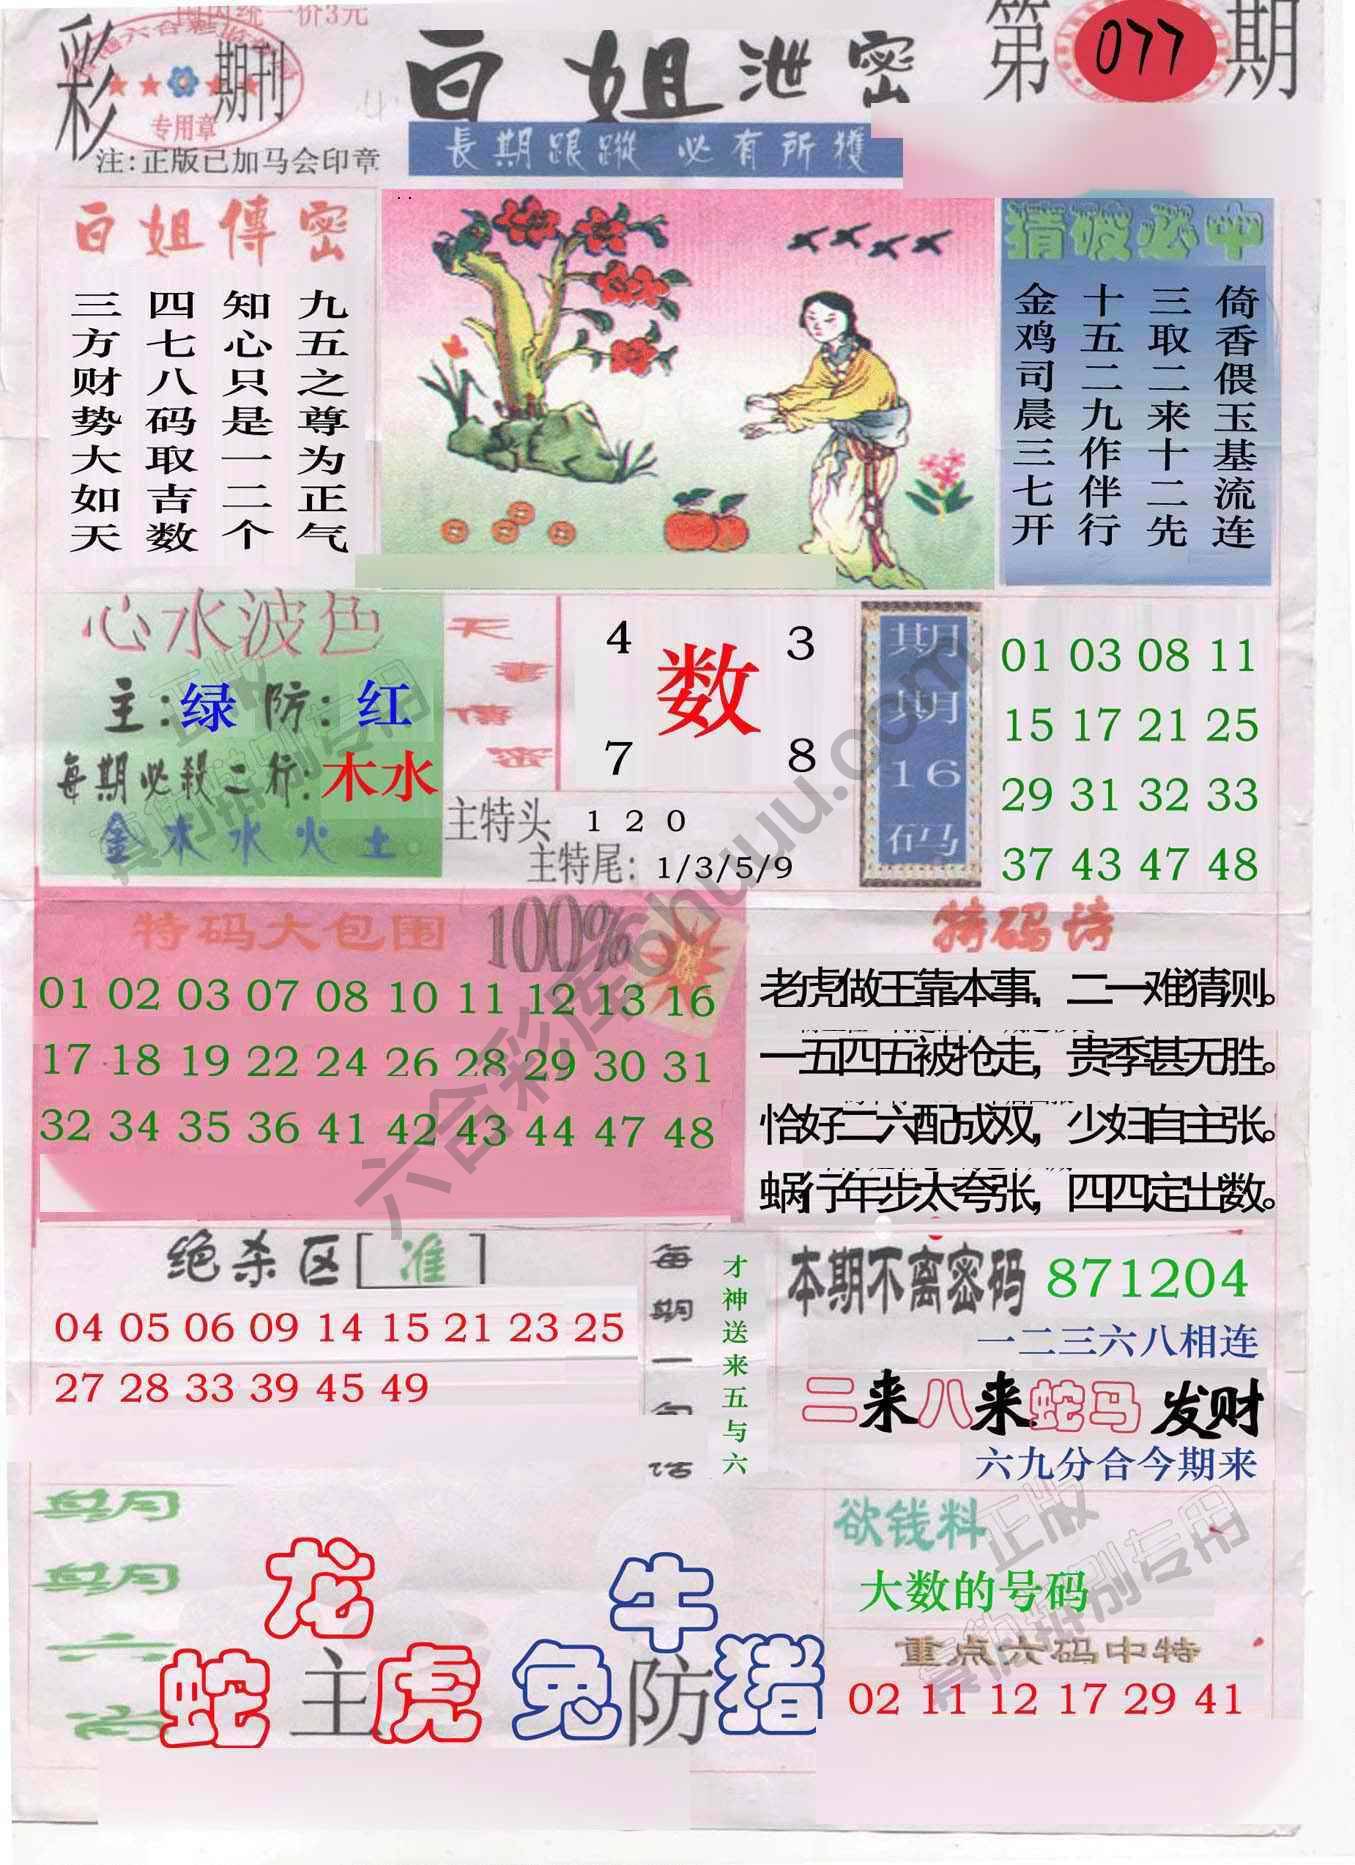 国内统一价3元
彩
期刊
专用章
注:正版已加马会印章
白姐泄密
第077期
長期跟蹤 必有所獲
白姐傳密
九五之尊为正气
知心只是一二个
四七八码取吉数
三方财势大如天
猜破必中
倚香偎玉基流连
三取二来十二先
十五二九作伴行
金鸡司晨三七开
心水波色
主:绿 防:红
每期必殺二行:木水
金木水火土
天書傳密
4 3
数
7 8
主特头 1 2 0
主特尾: 1/3/5/9
期期16码
01 03 08 11
15 17 21 25
29 31 32 33
37 43 47 48
特码大包围 100%
01 02 03 07 08 10 11 12 13 16
17 18 19 22 24 26 28 29 30 31
32 34 35 36 41 42 43 44 47 48
特码诗
老虎做王靠本事,二一难猜测。
一五四五被抢走,贵季甚无胜。
恰好二六配成双,少妇自主张。
蜗行年步太夸张,四四定出数。
绝杀区[准]
04 05 06 09 14 15 21 23 25
27 28 33 39 45 49
每期一句话
才神送来五与六
本期不离密码 871204
一二三六八相连
二来八来蛇马发财
六九分合今期来
期期六肖
龙
蛇主虎
牛
兔防猪
欲钱料
大数的号码
重点六码中特
02 11 12 17 29 41
六合彩库ohuu.com